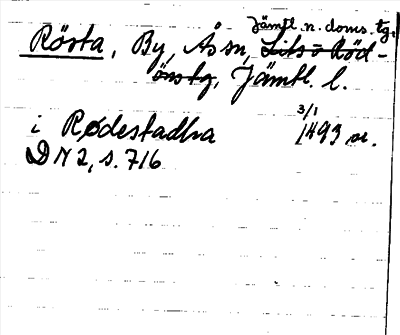 Jämtl. n. doms. tg.
Rösta, By, Ås sn, Lits o Röd-
önstg, Jämtl. l.
3/1
i Rødestadha 1493 or.
DN 2, s. 716